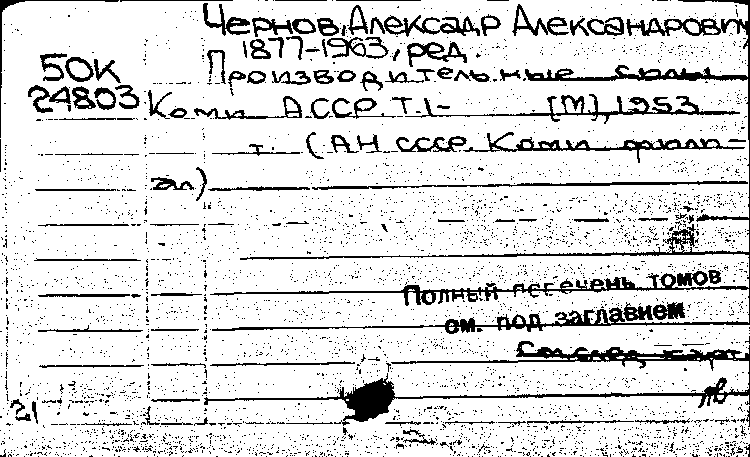 Чернов, Александр Александрович
1877-1963, ред.
50К Производительные силы
24803 Коми АССР. Т.1- [М], 1953
т. (АН СССР. Коми филиал-
ал)
Полный перечень томов
см. под заглавием
См. след. карт.
21